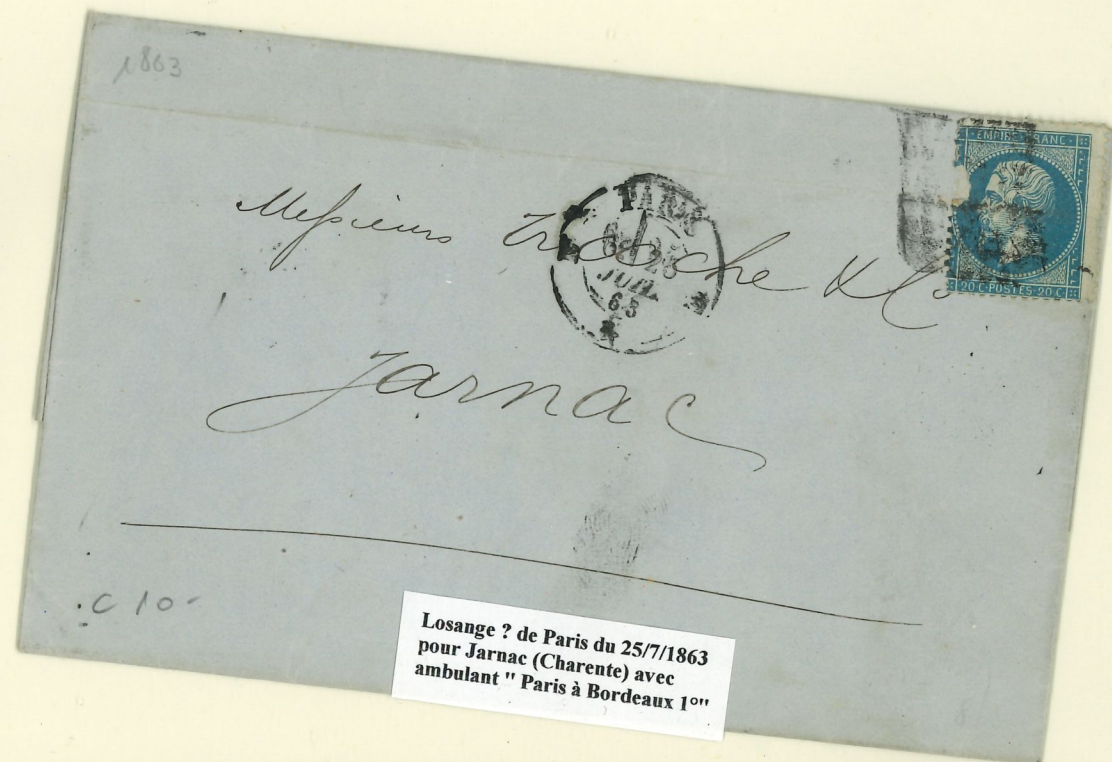 1863
EMPIRE FRANC
PARIS
25
JUIL.
63
Messieurs & Co
20 C POSTES 20 C
Jarnac
C 10-
Losange ? de Paris du 25/7/1863
pour Jarnac (Charente) avec
ambulant " Paris à Bordeaux 1°"